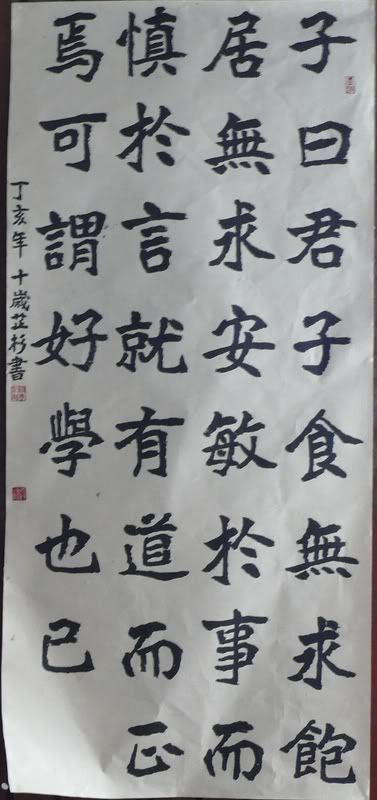 子曰君子食無求飽
居無求安敏於事而
慎於言就有道而正
焉可謂好學也已
丁亥年十歲芷杉書